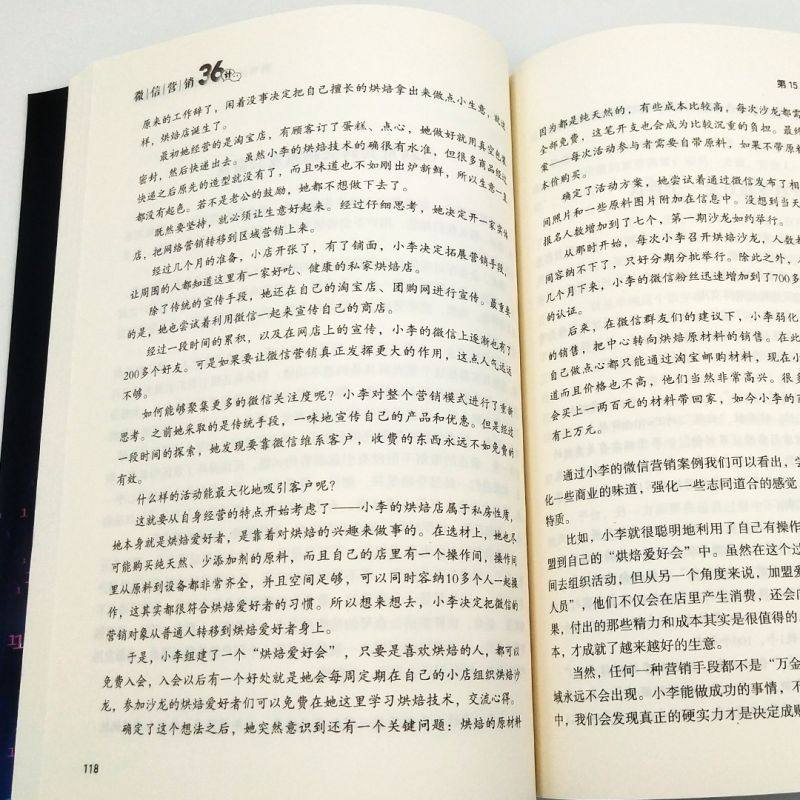 微|信|营|销 36计
原来的工作辞了，闲着没事决定把自己擅长的烘焙拿出来做点小生意，就这
样，烘焙店诞生了。
最初她经营的是淘宝店，有顾客订了蛋糕、点心，她做好就用真空包装
密封，然后快递出去。虽然小李的烘焙技术的确很有水准，但很多商品经过
快递之后原先的造型就没有了，而且味道也不如刚出炉新鲜，所以生意一直
都没有起色。若不是老公的鼓励，她都不想做下去了。
既然要坚持，就必须让生意好起来。经过仔细思考，她决定开一家实体
店，把网络营销转移到区域营销上来。
经过几个月的准备，小店开张了，有了铺面，小李决定拓展营销手段，
让周围的人都知道这里有一家好吃、健康的私家烘焙店。
除了传统的宣传手段，她还在自己的淘宝店、团购网进行宣传。最重要
的是，她也尝试着利用微信一起来宣传自己的商店。
经过一段时间的累积，以及在网店上的宣传，小李的微信上逐渐也有了
200多个好友。可是如果要让微信营销真正发挥更大的作用，这点人气远远
不够。
如何能够聚集更多的微信关注度呢？小李对整个营销模式进行了重新
思考。之前她采取的是传统手段，一味地宣传自己的产品和优惠。但是经过
一段时间的探索，她发现要靠微信维系客户，收费的东西永远不如免费的
有效。
什么样的活动能最大化地吸引客户呢？
这就要从自身经营的特点开始考虑了——小李的烘焙店属于私房性质，
她本身就是烘焙爱好者，是靠着对烘焙的兴趣来做事的。在选材上，她也尽
可能购买纯天然、少添加剂的原料，而且自己的店里有一个操作间，操作间
里从原料到设备都非常齐全，并且空间足够，可以同时容纳10多个人一起操
作，这其实都很符合烘焙爱好者的习惯。所以想来想去，小李决定把微信的
营销对象从普通人转移到烘焙爱好者身上。
于是，小李组建了一个“烘焙爱好会”，只要是喜欢烘焙的人，都可以
免费入会，入会以后有一个好处就是她会每周定期在自己的小店组织烘焙沙
龙，参加沙龙的烘焙爱好者们可以免费在她这里学习烘焙技术，交流心得。
确定了这个想法之后，她突然意识到还有一个关键问题：烘焙的原材料
118
第15
因为都是纯天然的，有些成本比较高，每次沙龙都需
全部免费，这笔开支也会成为比较沉重的负担。最终
案——每次活动参与者需要自带原料，如果不带原料
本价购买。
确定了活动方案，她尝试着通过微信发布了相
间照片和一些原料图片附加在信息中。没想到当天
报名人数增加到了七个，第一期沙龙如约举行。
从那时开始，每次小李召开烘焙沙龙，人数都
间容纳不下了，只好分期分批举行。除此之外，
几个月下来，小李的微信粉丝迅速增加到了700多
的认证。
后来，在微信群友们的建议下，小李弱化
的销售，把中心转向烘焙原材料的销售。在此
自己做点心都只能通过淘宝邮购材料，现在小
道而且价格也不高，他们当然非常高兴。很多
会买上一两百元的材料带回家，如今小李的
有上万元。
通过小李的微信营销案例我们可以看出，
化一些商业的味道，强化一些志同道合的感觉
特质。
比如，小李就很聪明地利用了自己有操作
盟到自己的“烘焙爱好会”中。虽然在这个过
间去组织活动，但从另一个角度来说，加盟爱
人员”，他们不仅会在店里产生消费，还会
果，付出的那些精力和成本其实是很值得的
本，才成就了越来越好的生意。
当然，任何一种营销手段都不是“万金
域永远不会出现。小李能做成功的事情，不
中，我们会发现真正的硬实力才是决定成败